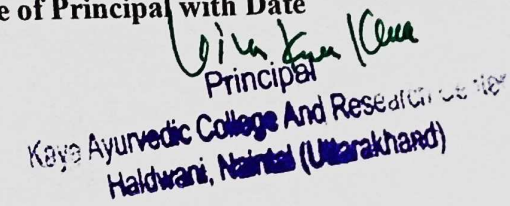 e of Principal with Date
Principal
Kaya Ayurvedic College And Research
Haldwani, Nainital (Uttarakhand)